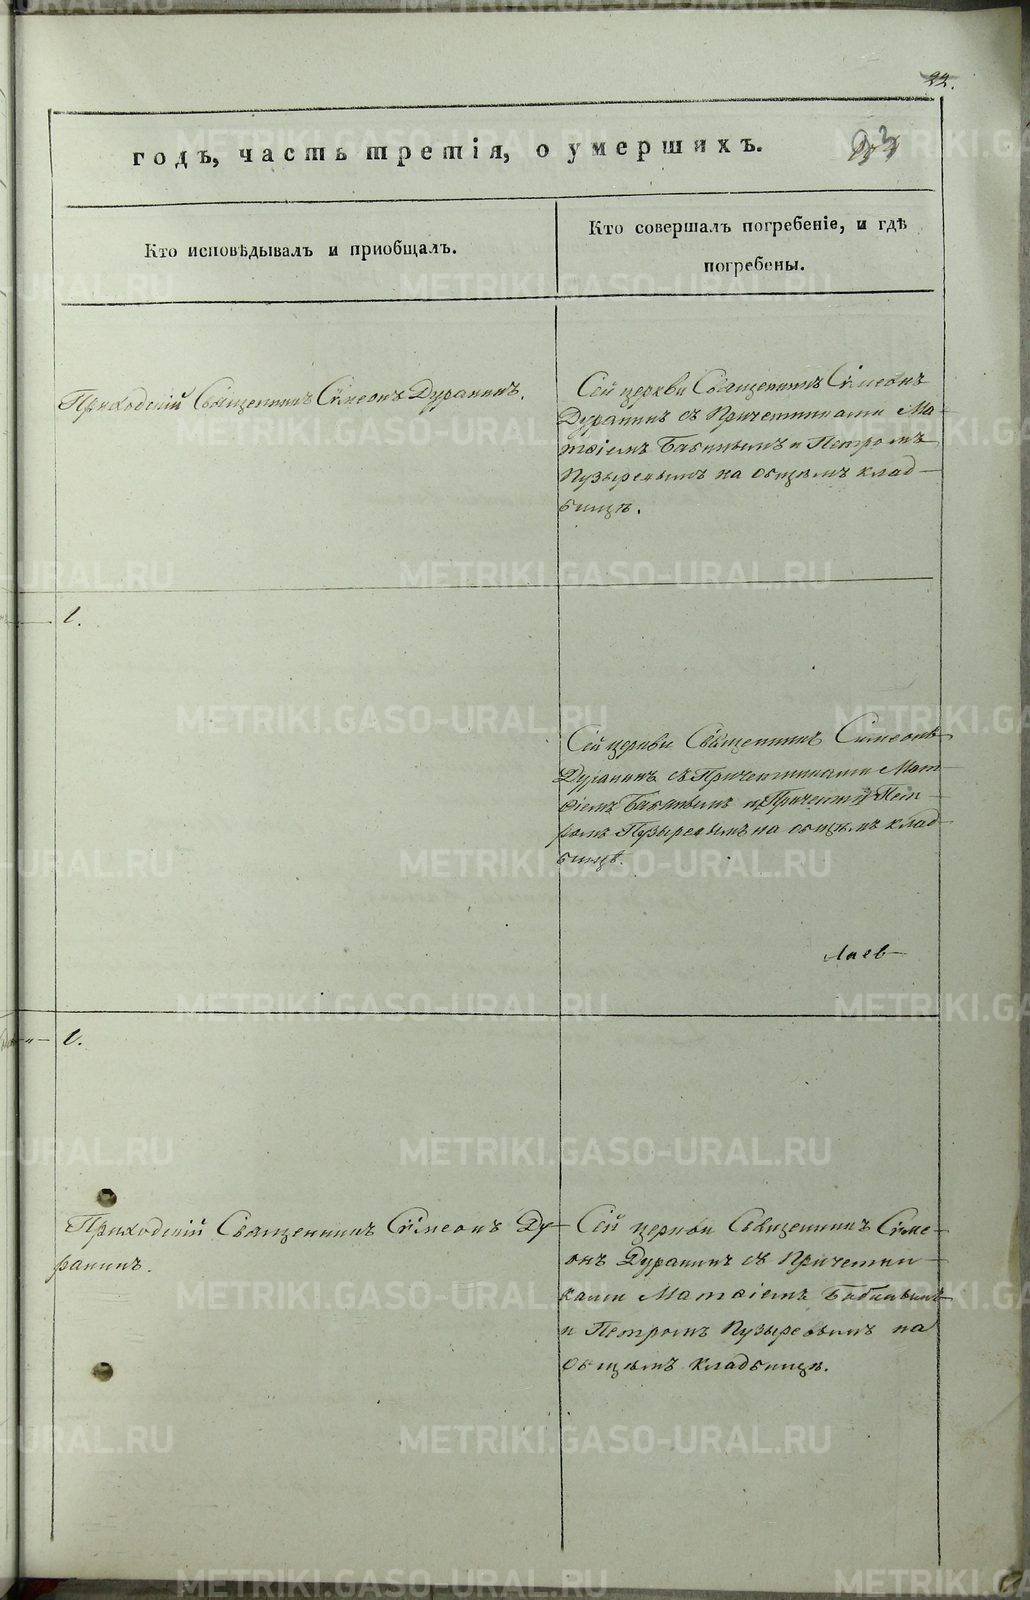 22.
годъ, часть третія, о умершихъ.
23
Кто исповѣдывалъ и приобщалъ.
Кто совершалъ погребеніе, и гдѣ
погребены.
Приходскій Священникъ Сѵмеонъ Дуранинъ.
Сей церкви Священникъ Сѵмеонъ
Дуранинъ съ Причетниками Ма-
тѳіемъ Бабинымъ и Петромъ
Пузыревымъ на общемъ клад-
бищѣ.
Сей церкви Священникъ Сѵмеонъ
Дуранинъ съ Причетниками Мат-
ѳіемъ Бабинымъ и Пет-
ромъ Пузыревымъ на общемъ клад-
бищѣ.
Лаев
Приходскій Священникъ Сѵмеонъ Ду-
ранинъ.
Сей церкви Священникъ Сѵме-
онъ Дуранинъ съ Причетни-
ками Матѳіемъ Бабинымъ
и Петромъ Пузыревымъ на
общемъ кладбищѣ.
METRIKI.GASO-URAL.RU